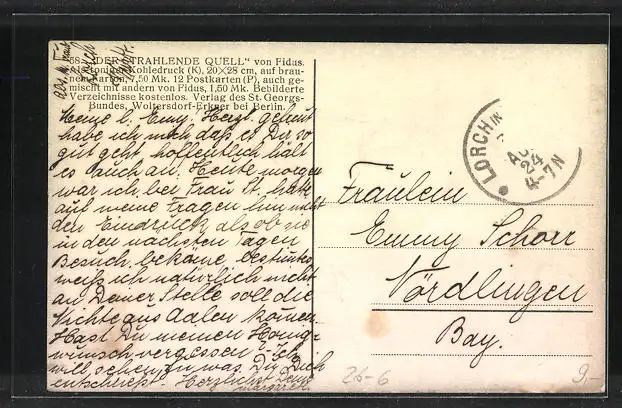 58 „DER STRAHLENDE QUELL" von Fidus.
Kohledruck (K), 20×28 cm, auf brau-
nem Karton, 7,50 Mk. 12 Postkarten (P), auch ge-
mischt mit andern von Fidus, 1,50 Mk. Bebilderte
Verzeichnisse kostenlos. Verlag des St. Georgs-
Bundes, Woltersdorf-Erkner bei Berlin.
Meine l. Emy. Herzl. gefreut
habe ich mich daß es Dir so
gut geht hoffentlich hält
es auch an. Heute morgen
war ich bei Frau St. hatte
auf meine Fragen hin nicht
den Eindruck als ob sie
in den nächsten Tagen
Besuch bekäme bestimmt
weiß ich natürlich nicht
an Deiner Stelle soll die
Nichte aus Aalen kommen.
Hast Du meinen Honig-
wunsch vergessen? Ich
will sehen zu was Du Dich
entschließt. Herzlichst Deine
LORCH
24
4-7N
Fräulein
Emmy Schorr
Nördlingen
Bay.
26-6
9,-